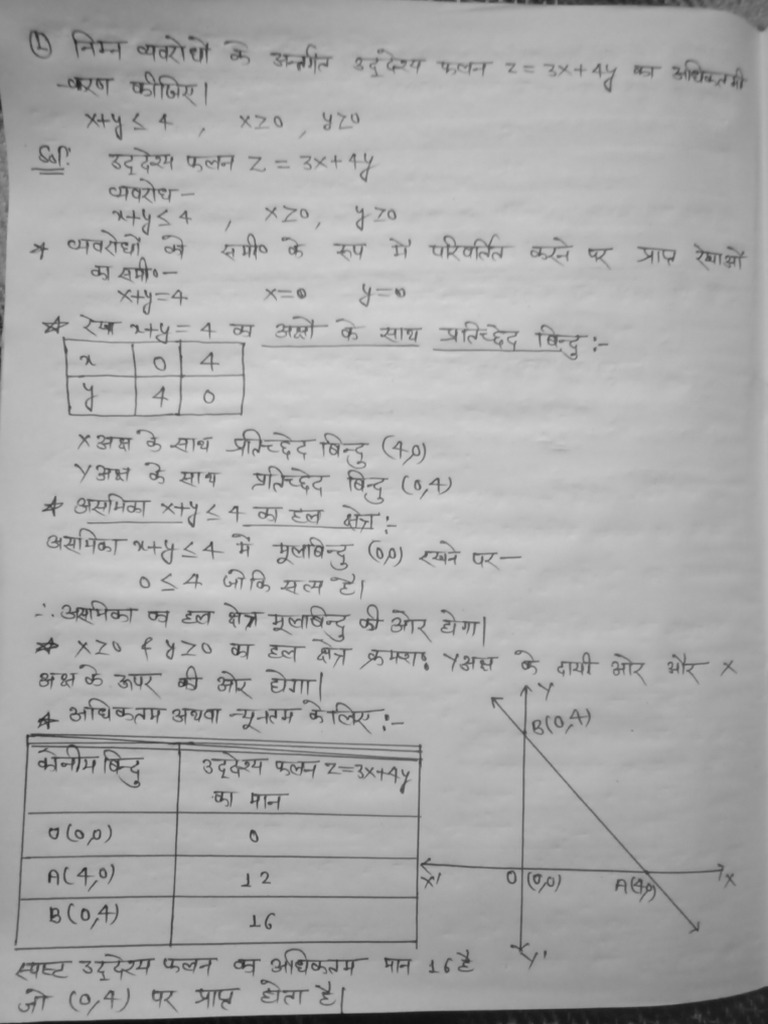 ① निम्न व्यवरोधों के अन्तर्गत उद्देश्य फलन z = 3x+4y का अधिकतमी
-करण कीजिए।
x+y ≤ 4 , x≥0 , y≥0
Sol: उद्देश्य फलन z = 3x+4y
व्यवरोध –
x+y ≤ 4 , x≥0, y≥0
* व्यवरोधों को समी० के रूप में परिवर्तित करने पर प्राप्त रेखाओं
का समी०–
x+y=4 x=0 y=0
* रेखा x+y = 4 का अक्षों के साथ प्रतिच्छेद बिन्दु :-
x 0 4
y 4 0
X अक्ष के साथ प्रतिच्छेद बिन्दु (4,0)
Y अक्ष के साथ प्रतिच्छेद बिन्दु (0,4)
* असमिका x+y ≤ 4 का हल क्षेत्र :-
असमिका x+y ≤ 4 में मूलबिन्दु (0,0) रखने पर –
0 ≤ 4 जोकि सत्य है।
∴ असमिका का हल क्षेत्र मूलबिन्दु की ओर होगा।
* x≥0 & y≥0 का हल क्षेत्र क्रमशः Y अक्ष के दायी ओर और X
अक्ष के ऊपर की ओर होगा।
* अधिकतम अथवा न्यूनतम के लिए :-
कोनीय बिन्दु उद्देश्य फलन z=3x+4y
का मान
O(0,0) 0
A(4,0) 12
B(0,4) 16
Y
B(0,4)
X' O (0,0) A(4,0) X
Y'
स्पष्ट उद्देश्य फलन का अधिकतम मान 16 है
जो (0,4) पर प्राप्त होता है।